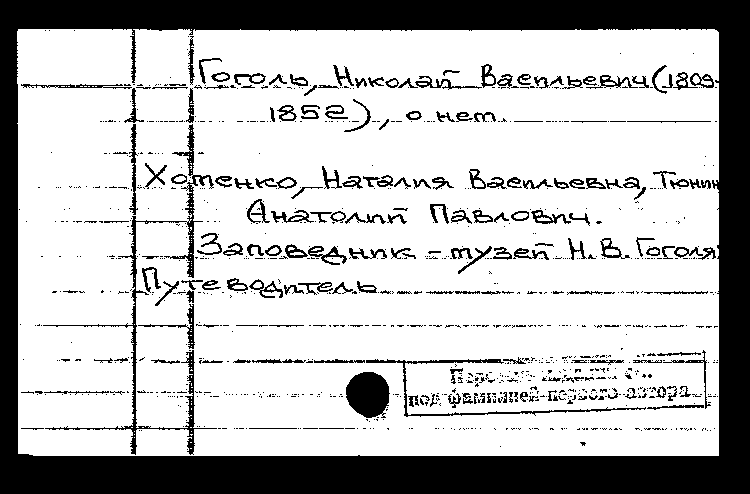 Гоголь, Николай Васильевич (1809-
1852), о нем.
Хотенко, Наталия Васильевна, Тюнин
Анатолий Павлович.
Заповедник - музей Н. В. Гоголя:
Путеводитель
под фамилией первого автора